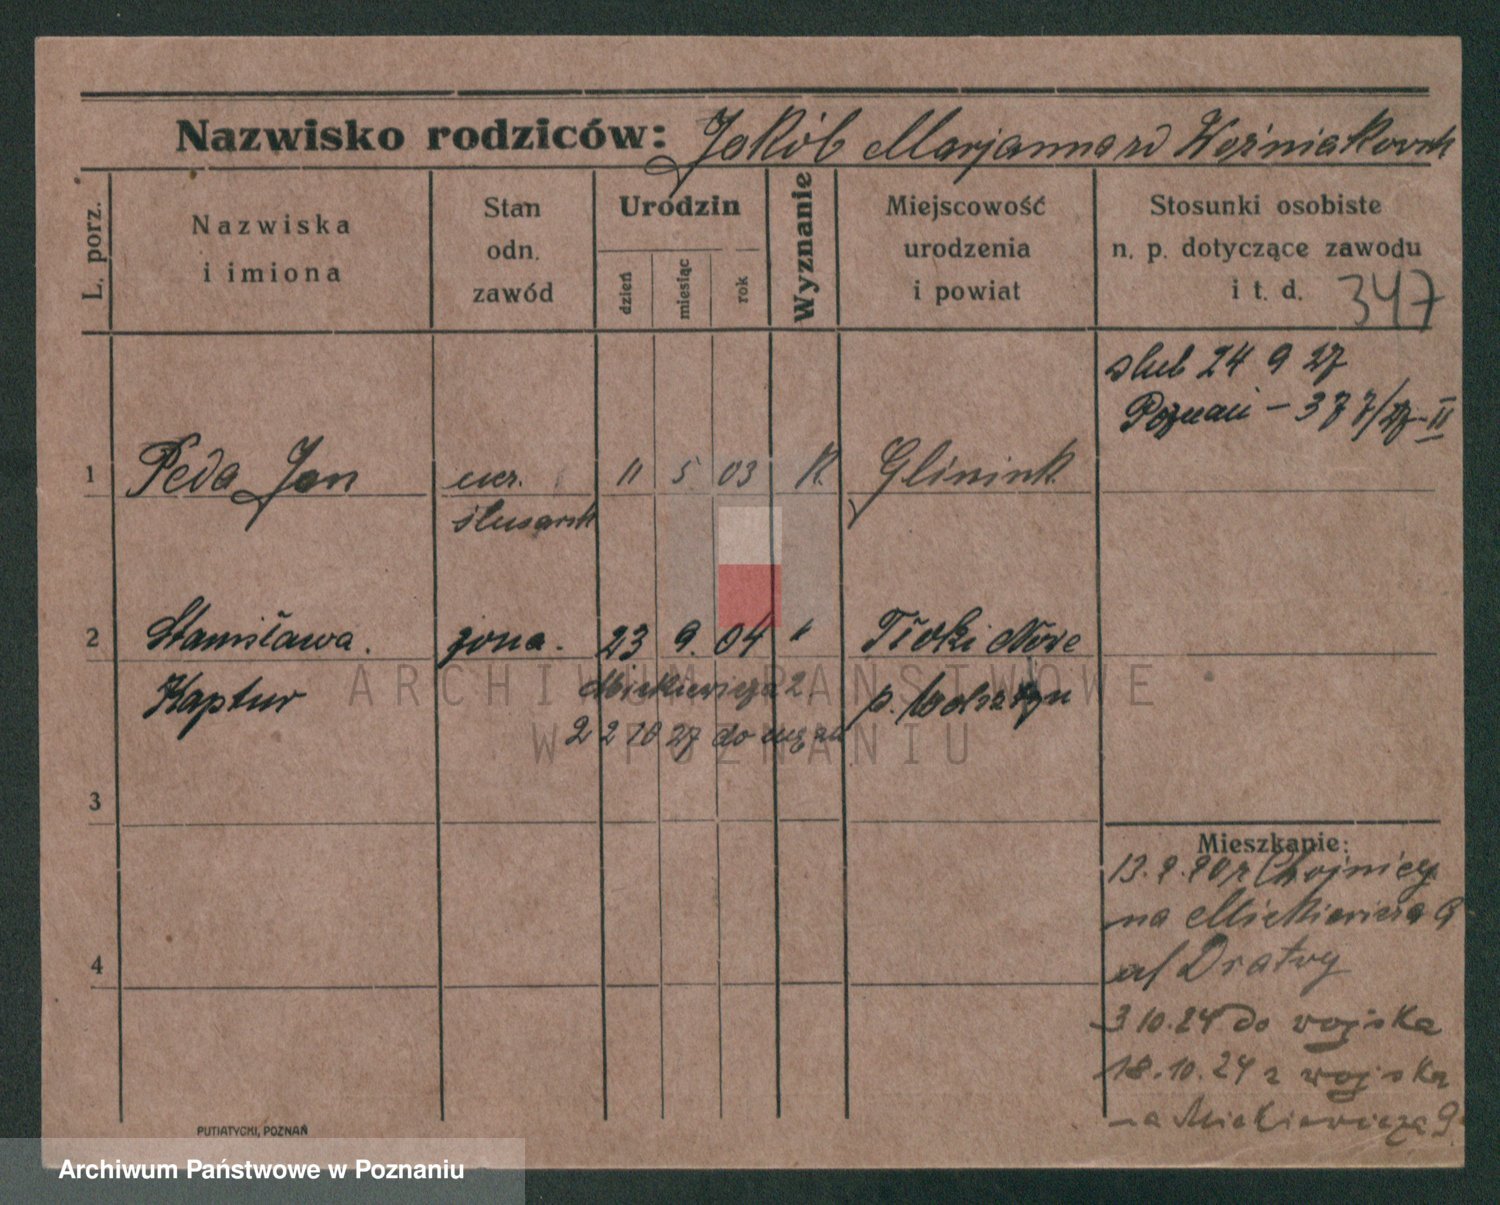 Nazwisko rodziców: Jakób Marjanna zd Woźniakovch
L. porz.
Nazwiska
i imiona
Stan
odn.
zawód
Urodzin
dzień
miesiąc
rok
Wyznanie
Miejscowość
urodzenia
i powiat
Stosunki osobiste
n. p. dotyczące zawodu
i t. d. 347
slub 24 9 27
Poznań - 377/27-II
1 Peda Jan ucz. 11 5 03 R. Glinink
slusarsk
2 Stanisława. żona. 23 9. 04 " Tłoki Nowe
Kaptur Mickiewicza 2 p. Wolsztyn
22 10 27 do męża
3
4
Mieszkanie:
Chojnicy
na Mickiewicza 9
a/ Dratwy
3 10.24 do wojska
18.10.24 z wojska
na Mickiewicza 9
PUTIATYCKI, POZNAŃ
ARCHIWUM PAŃSTWOWE
W POZNANIU
Archiwum Państwowe w Poznaniu